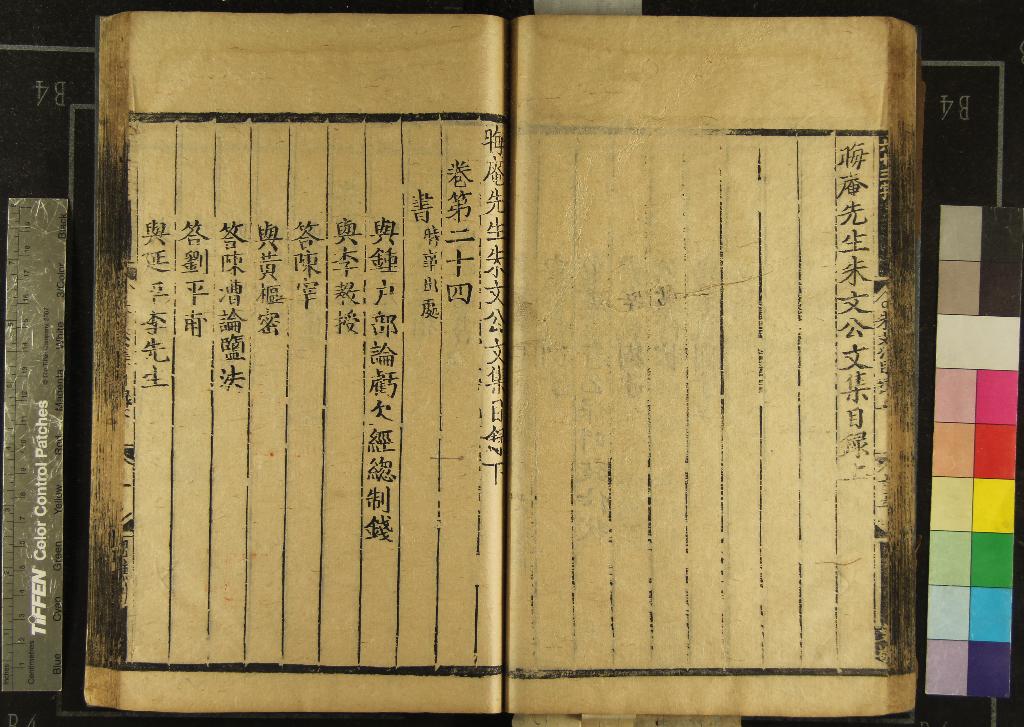 晦庵先生朱文公文集目録上
晦庵先生朱文公文集目録下
卷第二十四
書時事出處
與鍾戶部論虧欠經緫制錢
與李教授
答陳宰
與黃樞密
答陳漕論鹽法
答劉平甫
與延平李先生
B4
B4
TIFFEN Color Control Patches
Blue
Cyan
Green
Yellow
Red
Magenta
White
3/Color
Black
Centimetres
Inches